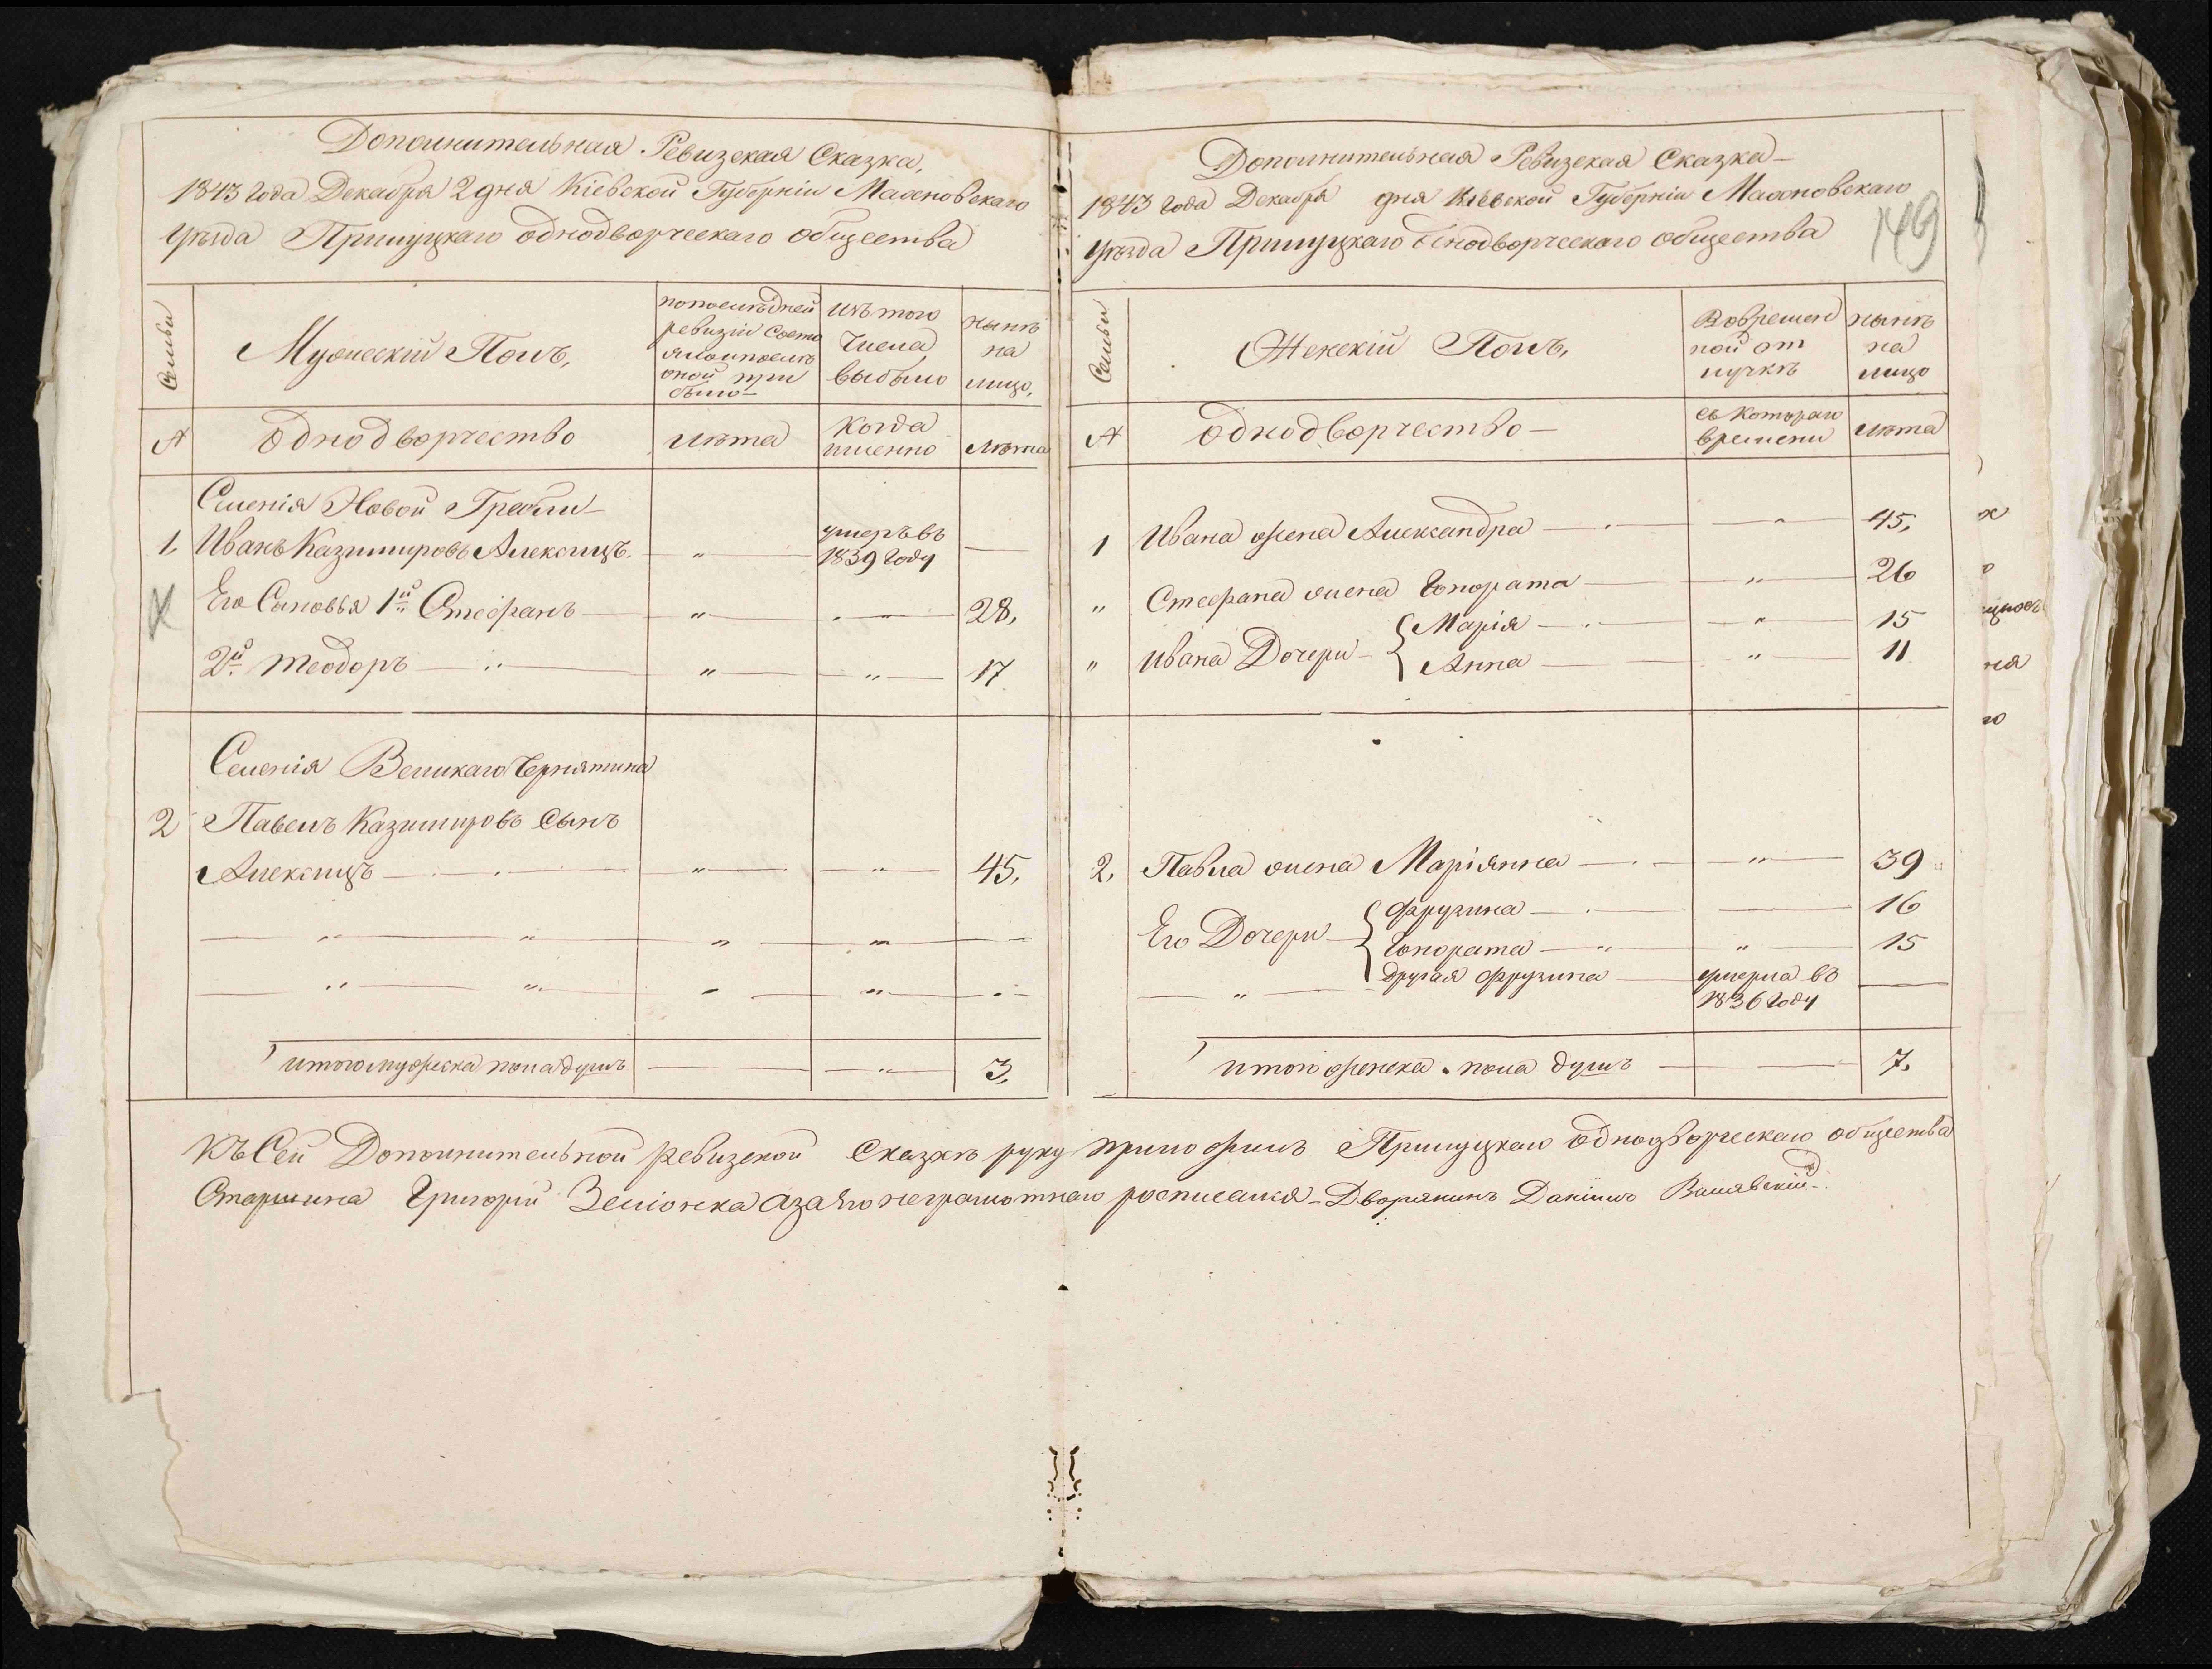 Дополнительная Ревизская Сказка,
1843 года Декабря 2 дня Кіевской Губерніи Махновскаго
уѣзда Прилуцкаго однодворческаго общества
Семьи
Мужескій Полъ,
по последней
ревизіи состо
яло и после
оной при
было
Изъ того
числа
выбыло
нынѣ
на
лицо,
А
Однодворчество
лѣта
когда
именно
лѣта
Селенія Новой Гребли
1, Иванъ Казимировъ Алексицъ. — „ — умеръ въ 1839 году —
Его Сыновья 1й Стефанъ — „ — 28,
2й Теодоръ — „ — „ — 17
Селенія Великаго Чернятина
2 Павелъ Казимировъ сынъ
Алексицъ — „ — „ — 45,
Итого мужеска пола душъ — „ — 3,
Дополнительная Ревизская Сказка
1843 года Декабря дня Кіевской Губерніи Махновскаго
уѣзда Прилуцкаго однодворческаго общества
149
Семьи
Женскій Полъ,
Во времен
ной от
лучкѣ
нынѣ
на
лицо
А
Однодворчество
съ котораго
времени
лѣта
1 Ивана жена Александра — „ — 45,
„ Стефана жена Гонората — „ — 26
„ Ивана Дочери { Марія — „ — 15
Анна — „ — 11
2, Павла жена Маріянна — „ — 39
Его Дочери { Фрузина — 16
Гонората — „ — 15
другая Фрузина — умерла въ 1836 году —
Итого женска пола душъ — 7.
Къ Сей Дополнительной ревизской сказкѣ руку приложилъ Прилуцкаго однодворческаго общества
Старшина Григорій Зеліонка а за его неграмотнаго росписался Дворянинъ Даніилъ Валявскій